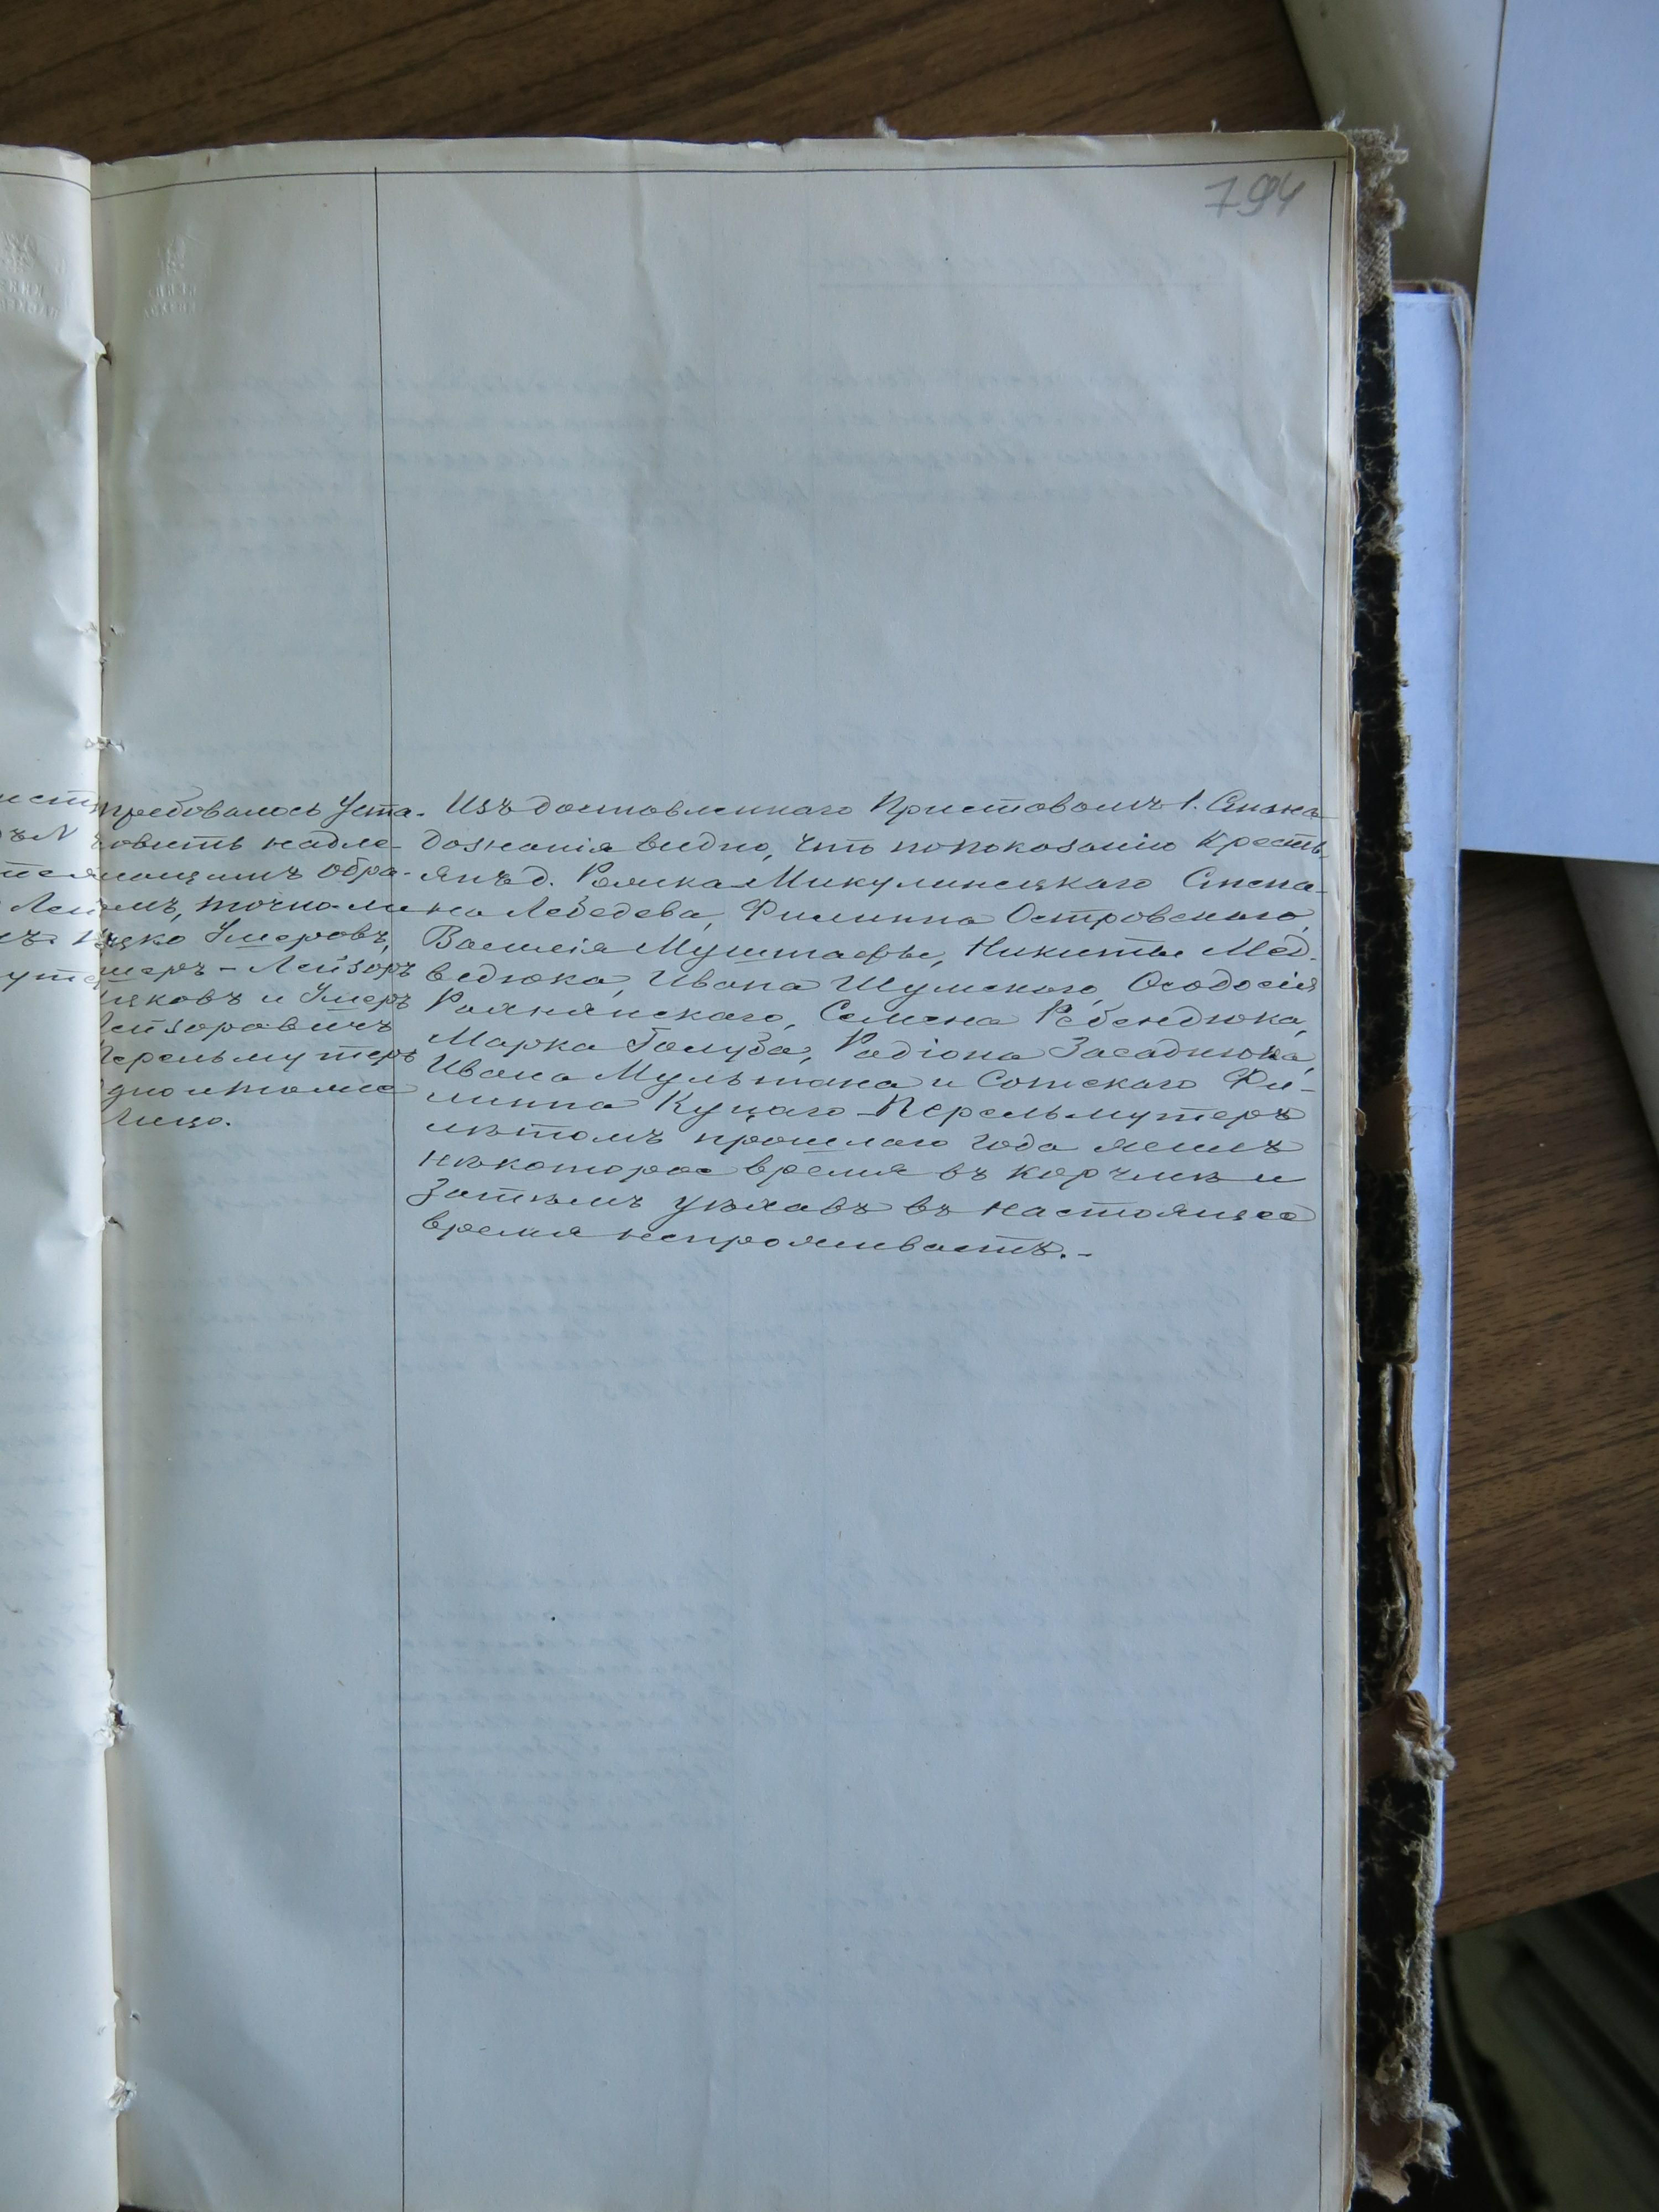 794
требовалось Уста-
новить надле-
жащимъ обра-
зомъ, точно ли
Ицко Умеровъ,
Лейзоръ
Ицковъ и Умеръ
Лейзоровичъ
Перельмутеръ
одно и тоже
Лицо.
Изъ доставленнаго Приставомъ 1. Стана
дознанія видно, Что по показанію Кресть-
янъ д. Микулинецкаго Степа-
на Лебедева, Филиппа Островскаго,
Василія Мушtaфы, Никиты Мед-
ведюка, Ивана Шумскаго, Ѳеодосія
Семена Ребендюка,
Марка Голуба, Радіона Засаднюка,
Ивана Мультана и Сотскаго Фи-
липпа Куцаго Перельмутеръ
лѣтомъ прошлаго года жилъ
нѣкоторое время въ корчмѣ и
Затѣмъ уѣхавъ въ настоящее
время непроживаетъ.-